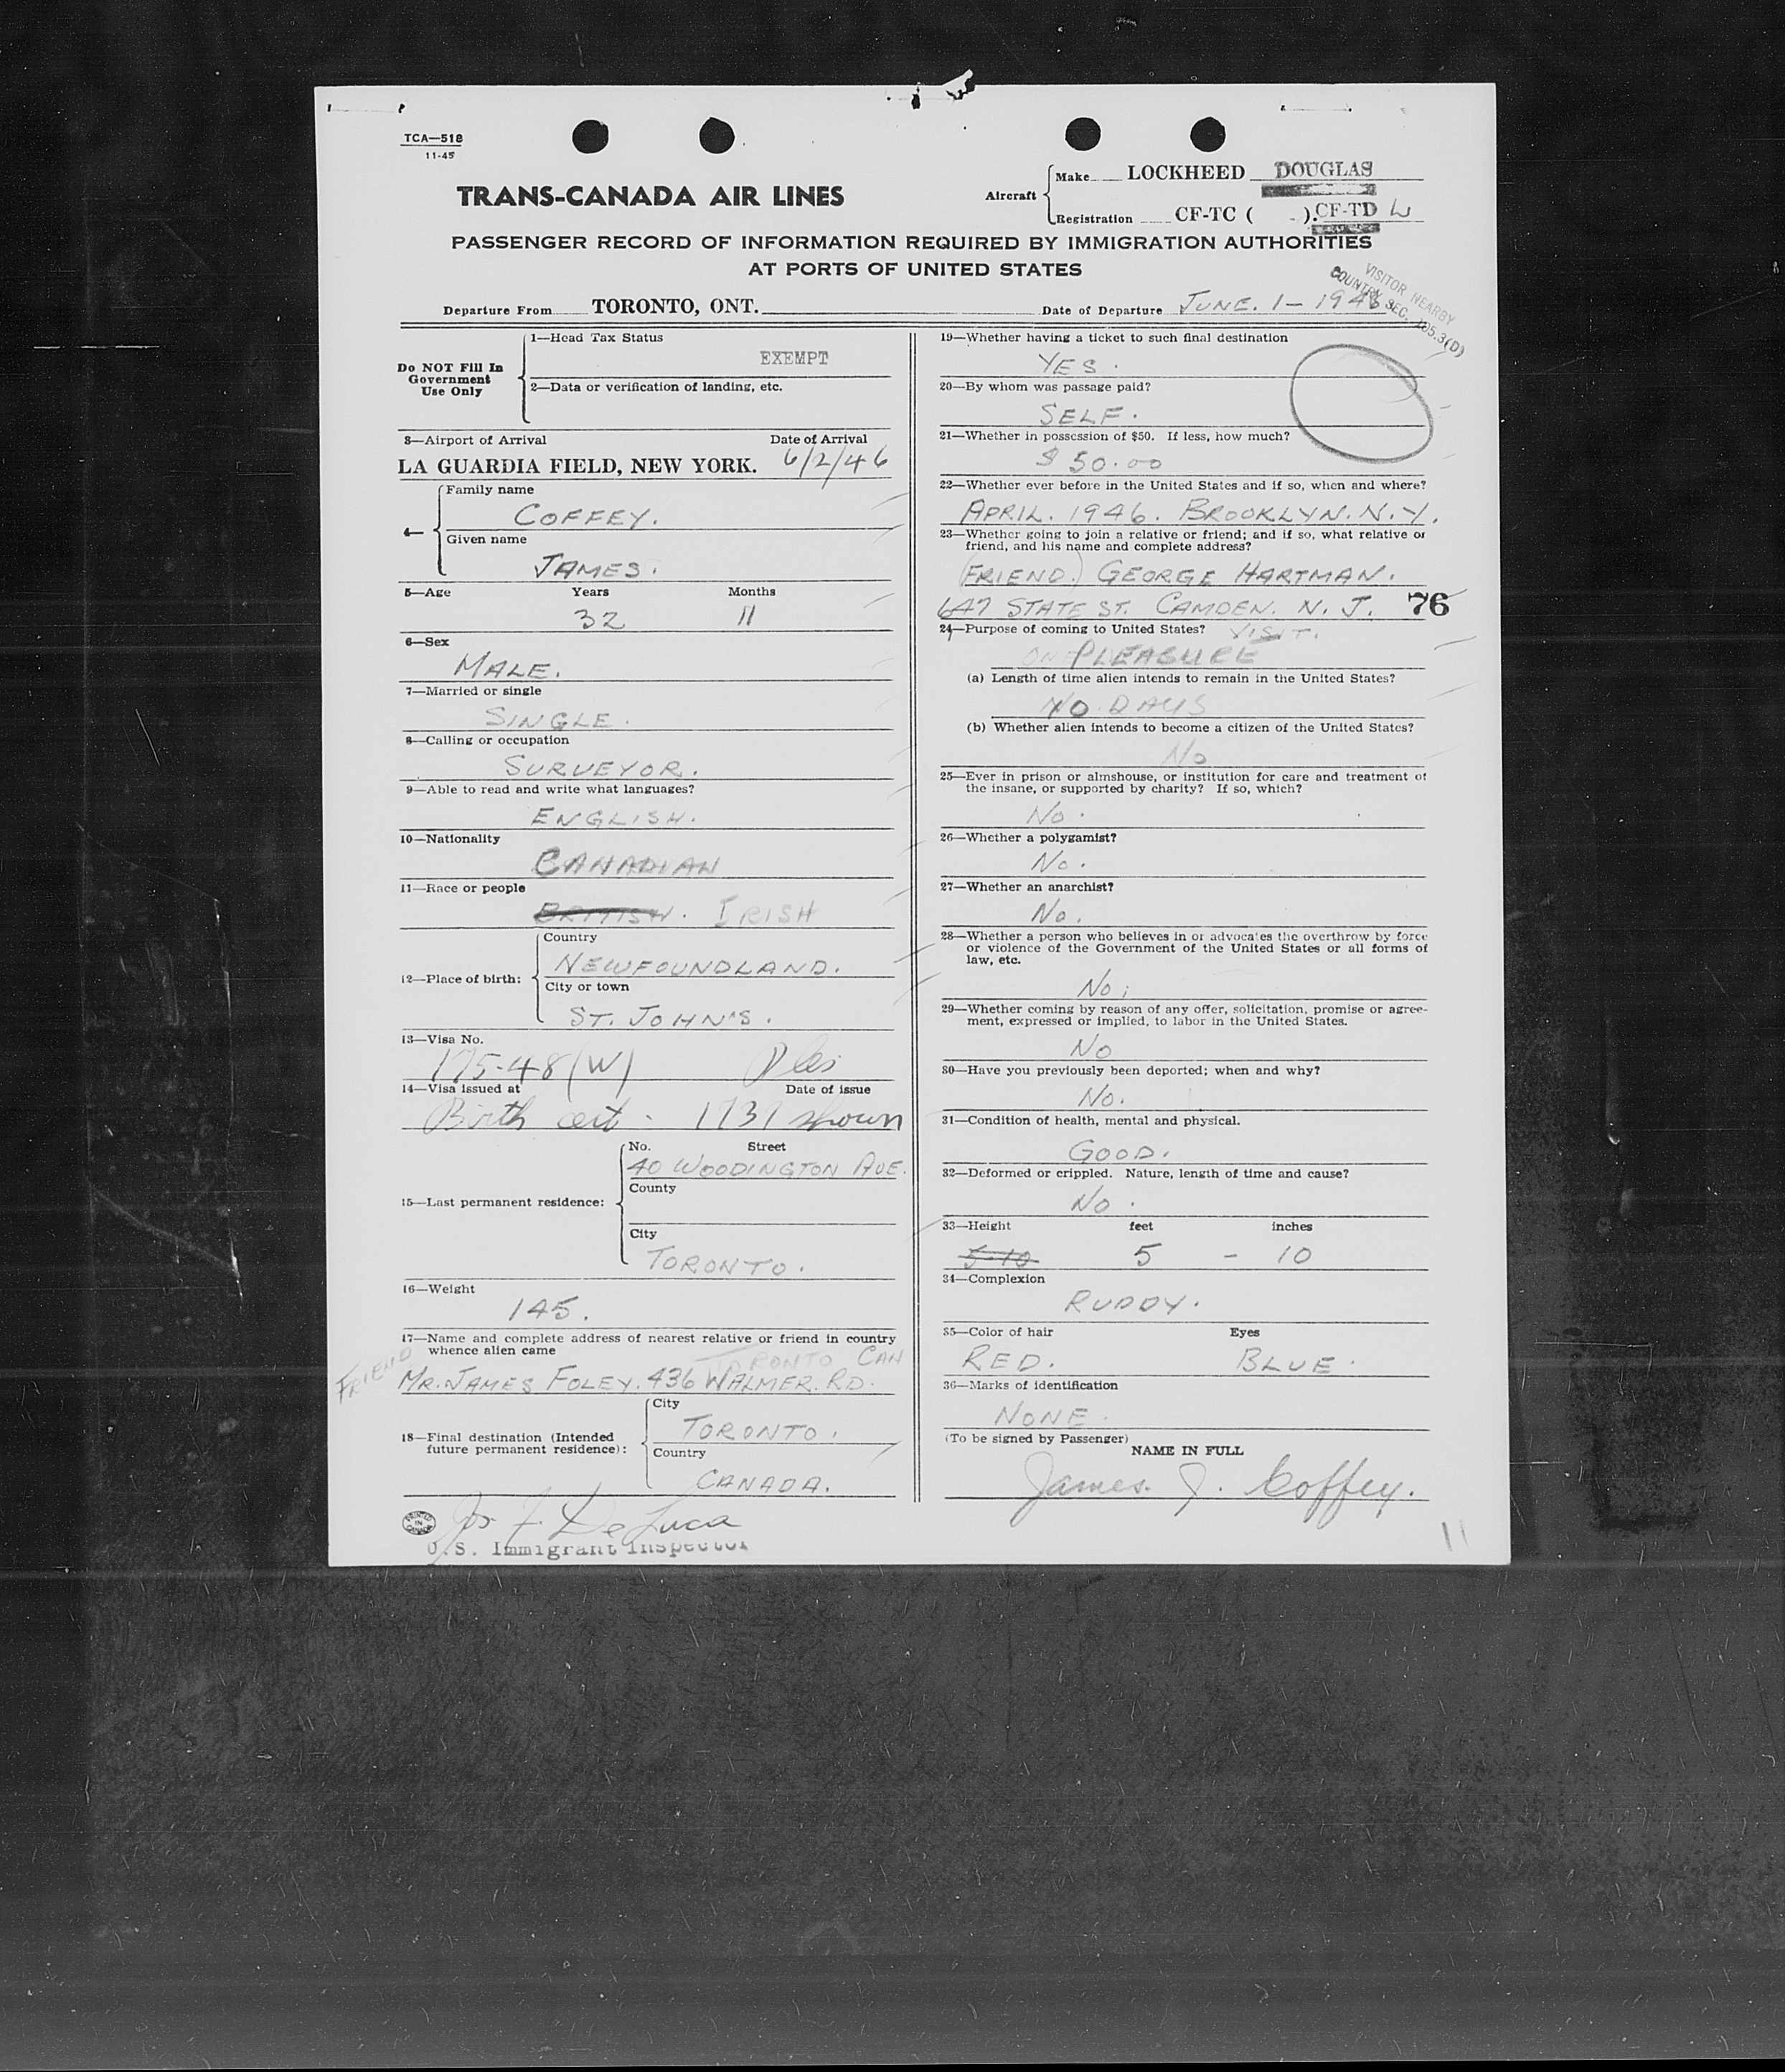 TCA—518
11-45
TRANS-CANADA AIR LINES
Aircraft
Make LOCKHEED DOUGLAS
Registration CF-TC ( ). CF-TD W
PASSENGER RECORD OF INFORMATION REQUIRED BY IMMIGRATION AUTHORITIES
AT PORTS OF UNITED STATES
VISITOR NEARBY
COUNTRY SEC. 105.3(D)
Departure From TORONTO, ONT. Date of Departure JUNE. 1 — 1946
Do NOT Fill In
Government
Use Only
1—Head Tax Status
EXEMPT
2—Data or verification of landing, etc.
3—Airport of Arrival Date of Arrival
LA GUARDIA FIELD, NEW YORK. 6/2/46
4—
Family name
COFFEY.
Given name
JAMES.
5—Age Years Months
32 11
6—Sex
MALE.
7—Married or single
SINGLE.
8—Calling or occupation
SURVEYOR.
9—Able to read and write what languages?
ENGLISH.
10—Nationality
CANADIAN
11—Race or people
BRITISH. IRISH
12—Place of birth:
Country
NEWFOUNDLAND.
City or town
ST. JOHN'S.
13—Visa No.
175-48 (W)
14—Visa issued at Date of issue
Birth cert - 1731 shown
15—Last permanent residence:
No. Street
40 WOODINGTON AVE.
County
City
TORONTO.
16—Weight
145.
17—Name and complete address of nearest relative or friend in country
whence alien came
TORONTO CAN
FRIEND MR. JAMES FOLEY. 436 WALMER. RD.
18—Final destination (Intended
future permanent residence):
City
TORONTO.
Country
CANADA.
PRINTED IN CANADA
Jos F. De Luca
U.S. Immigrant Inspector
19—Whether having a ticket to such final destination
YES.
20—By whom was passage paid?
SELF.
21—Whether in possession of $50. If less, how much?
$50.00
22—Whether ever before in the United States and if so, when and where?
APRIL. 1946. BROOKLYN. N.Y.
23—Whether going to join a relative or friend; and if so, what relative or
friend, and his name and complete address?
(FRIEND.) GEORGE HARTMAN.
647 STATE ST. CAMDEN. N. J. 76
24—Purpose of coming to United States? VISIT.
PLEASURE
(a) Length of time alien intends to remain in the United States?
10 DAYS
(b) Whether alien intends to become a citizen of the United States?
No
25—Ever in prison or almshouse, or institution for care and treatment of
the insane, or supported by charity? If so, which?
No.
26—Whether a polygamist?
No.
27—Whether an anarchist?
No.
28—Whether a person who believes in or advocates the overthrow by force
or violence of the Government of the United States or all forms of
law, etc.
No.
29—Whether coming by reason of any offer, solicitation, promise or agree-
ment, expressed or implied, to labor in the United States.
No
30—Have you previously been deported; when and why?
No.
31—Condition of health, mental and physical.
GOOD.
32—Deformed or crippled. Nature, length of time and cause?
No.
33—Height feet inches
5-10 5 - 10
34—Complexion
RUDDY.
35—Color of hair Eyes
RED. BLUE.
36—Marks of identification
NONE.
(To be signed by Passenger)
NAME IN FULL
James. J. Coffey.
11